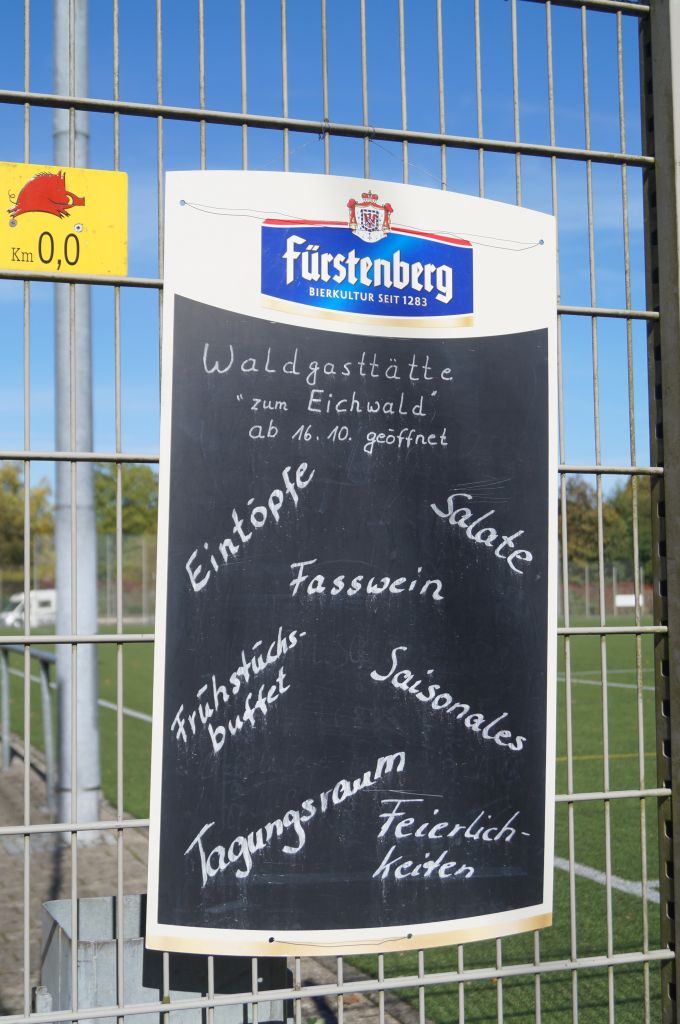 Km 0,0
Fürstenberg
BIERKULTUR SEIT 1283
Waldgasttätte
"zum Eichwald"
ab 16.10. geöffnet
Eintöpfe
Salate
Fasswein
Frühstücks-
buffet
Saisonales
Tagungsraum
Feierlich-
keiten